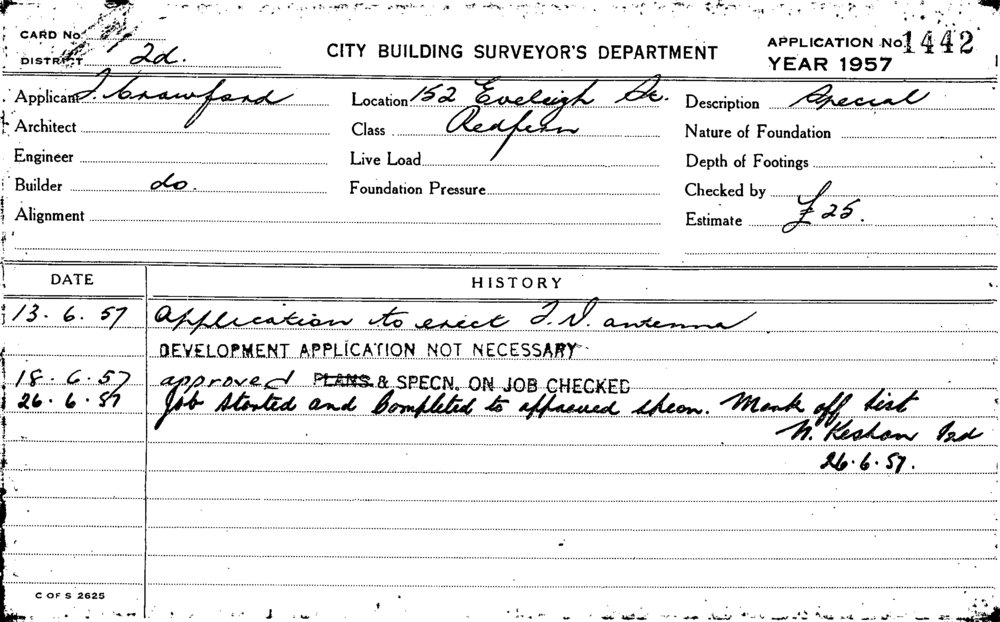 CARD No
DISTRICT 2d.
CITY BUILDING SURVEYOR'S DEPARTMENT
APPLICATION No 1442
YEAR 1957
Applicant J. Crawford
Location 152 Eveleigh St.
Description Special
Architect
Class Redfern
Nature of Foundation
Engineer
Live Load
Depth of Footings
Builder do.
Foundation Pressure
Checked by
Alignment
Estimate £25.
DATE
HISTORY
13.6.57 Application to erect T.V. antenna
DEVELOPMENT APPLICATION NOT NECESSARY
18.6.57 approved PLANS & SPECN. ON JOB CHECKED
26.6.57 Job Started and Completed to approved specn. Mark off list
N.
26.6.57.
C OF S 2625